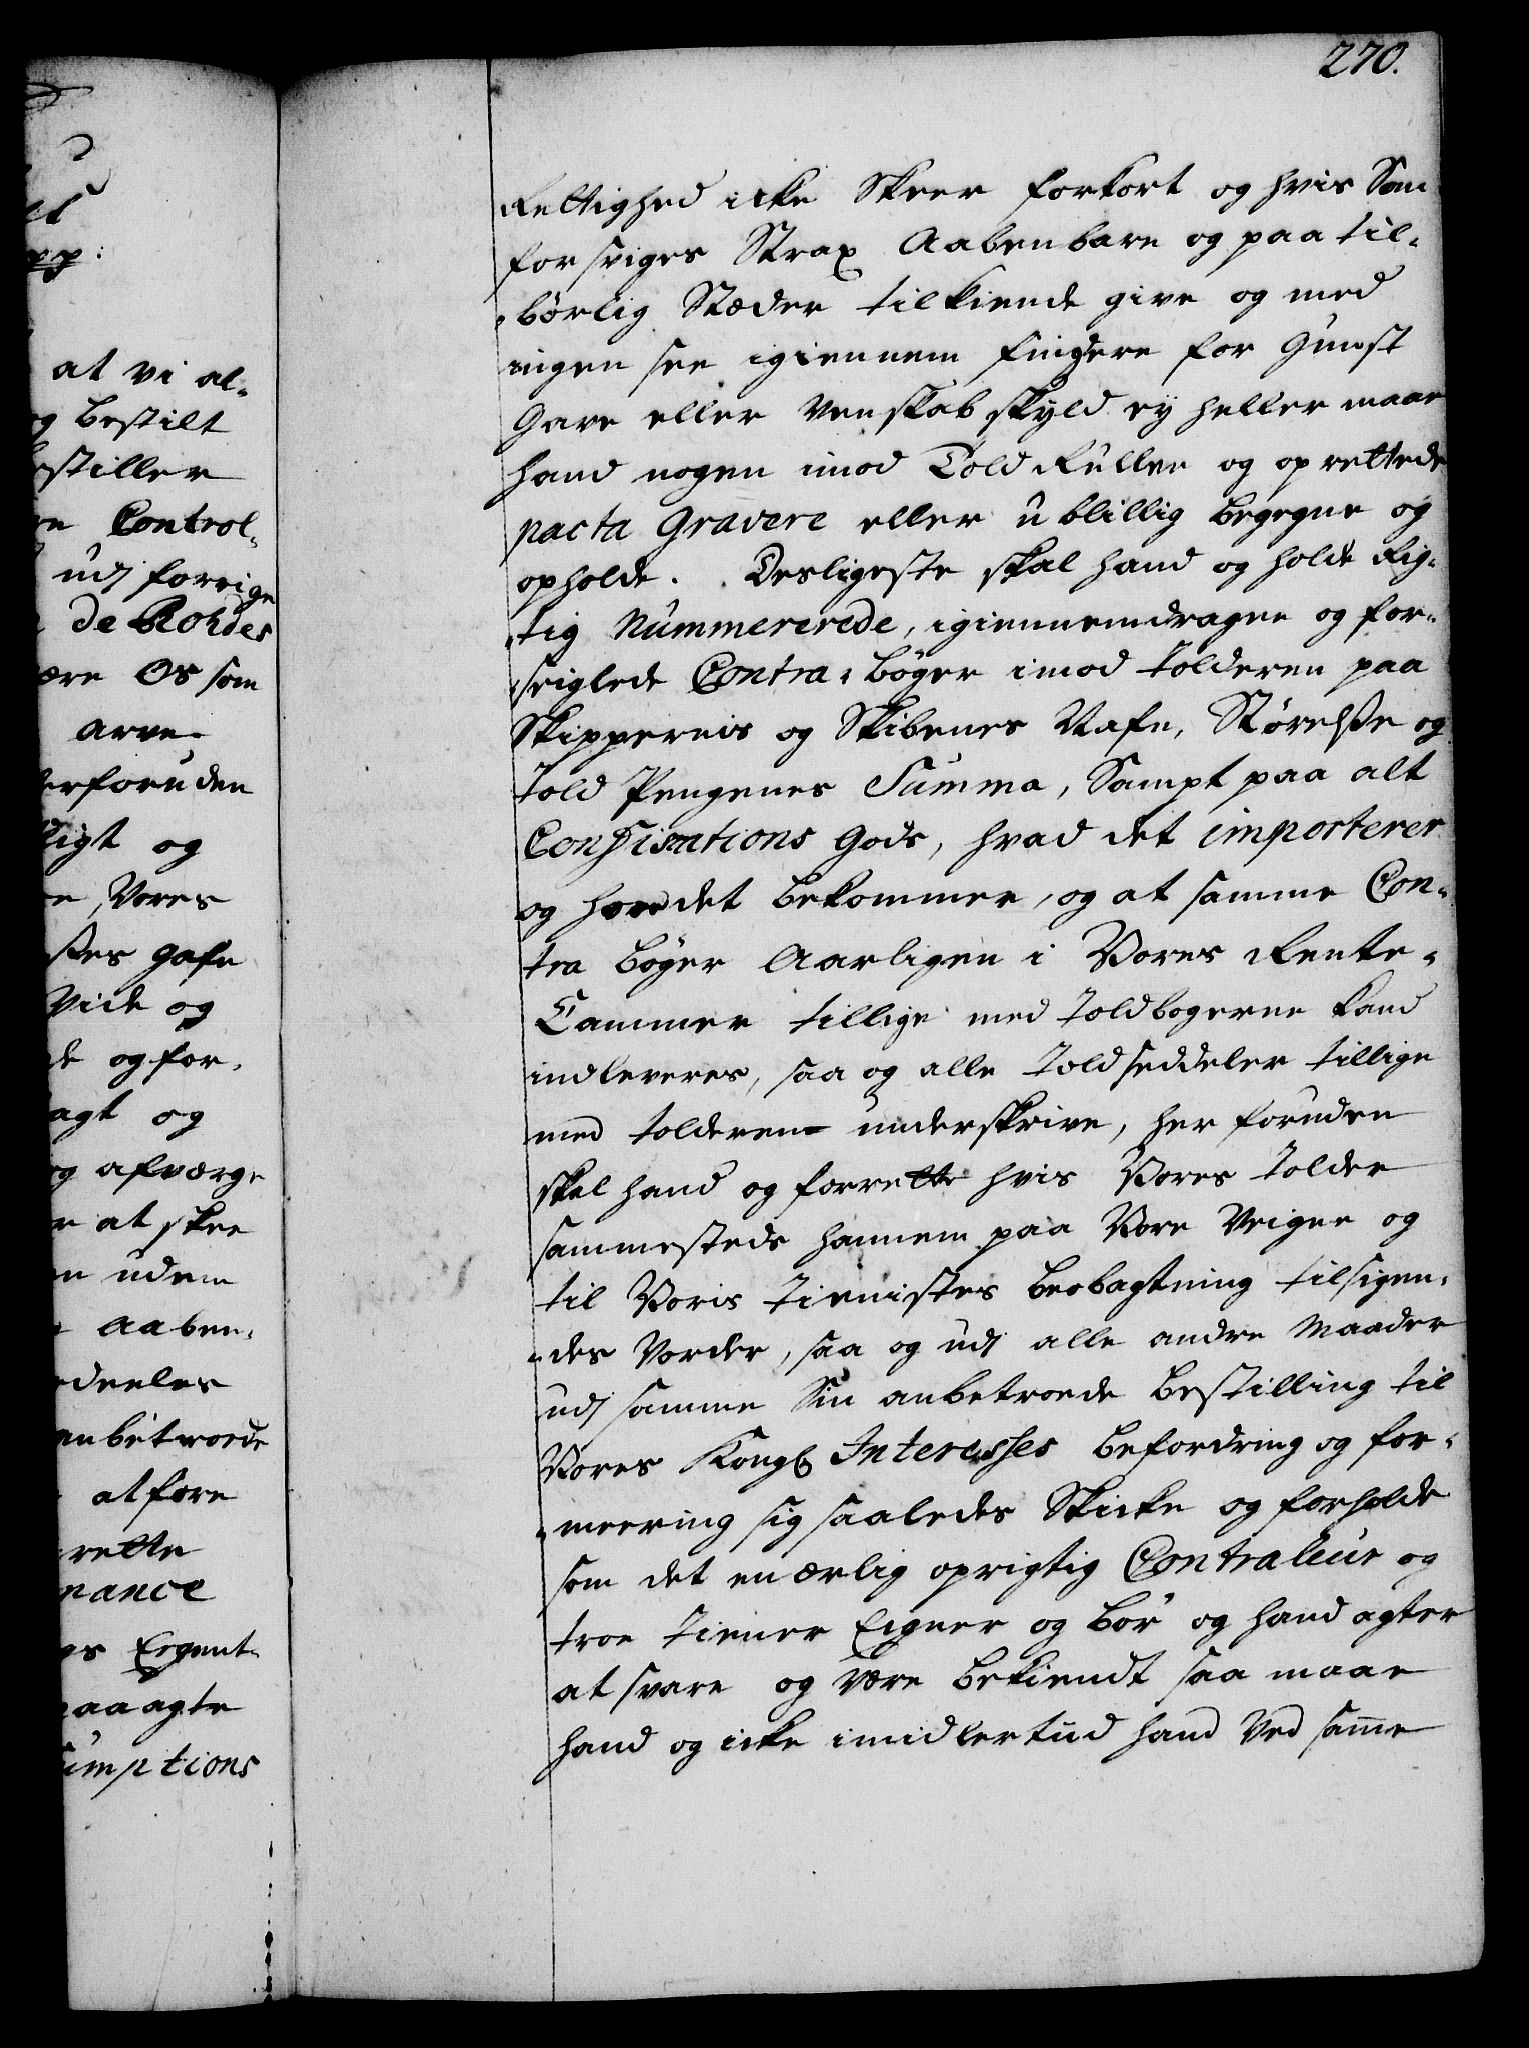 at vi al-
og bestilt
bestiller
Control-
udj forrige
de Rohdes
være Os som
arve-
derforuden
ligt og
, Vores
Vide og
de og for-
agt og
og afværge
at skee
uden
Aaben-
deeles
anbetroede
at fore
rette
nance
Eegent-
paaagte
umptions
270.
Rettighed icke Skeer forkort og hvis Som
forsviges Strax Aabenbare og paa til-
-börlig Stæder tilkiende give og med
ingen see igiennem fingere for Gunst
Gave eller Venskab skyld ey heller maae
hand nogen imod Told Rullen og oprettede
pacta Gravere eller ubillig begegne og
opholde. Desligeste skal hand og holde Rig-
-tig Nummererede, igiennemdragne og for-
-seiglede Contra-bøger imod tolderen paa
Skippernis og Skibenes Nafn, Størelsse og
Told Pengenes Summa, Sampt paa alt
Confiscations Gods, hvad det importerer
og hvor det bekommer, og at samme Con-
tra bøger Aarligen i Vores Rente-
Cammer tillige med toldbogerne kand
indleveres, saa og alle toldseddeler tillige
med tolderen underskrive, her foruden
skal hand og forrette hvis Vores tolder
sammesteds hannem paa Vore Veigne og
til Voris tienistes beobagtning tilsigen-
-des Vorder, saa og udj alle andre Maader
udj samme Sin anbetroede bestilling til
Vores Kongl Interesses befordring og for-
-meering sig saaledes Skicke og forholde
som det en ærlig oprigtig Contraleur og
troe tiener Eigner og bör og hand agter
at svare og være bekiendt saa maae
hand og icke imidlertiid hand Ved samme